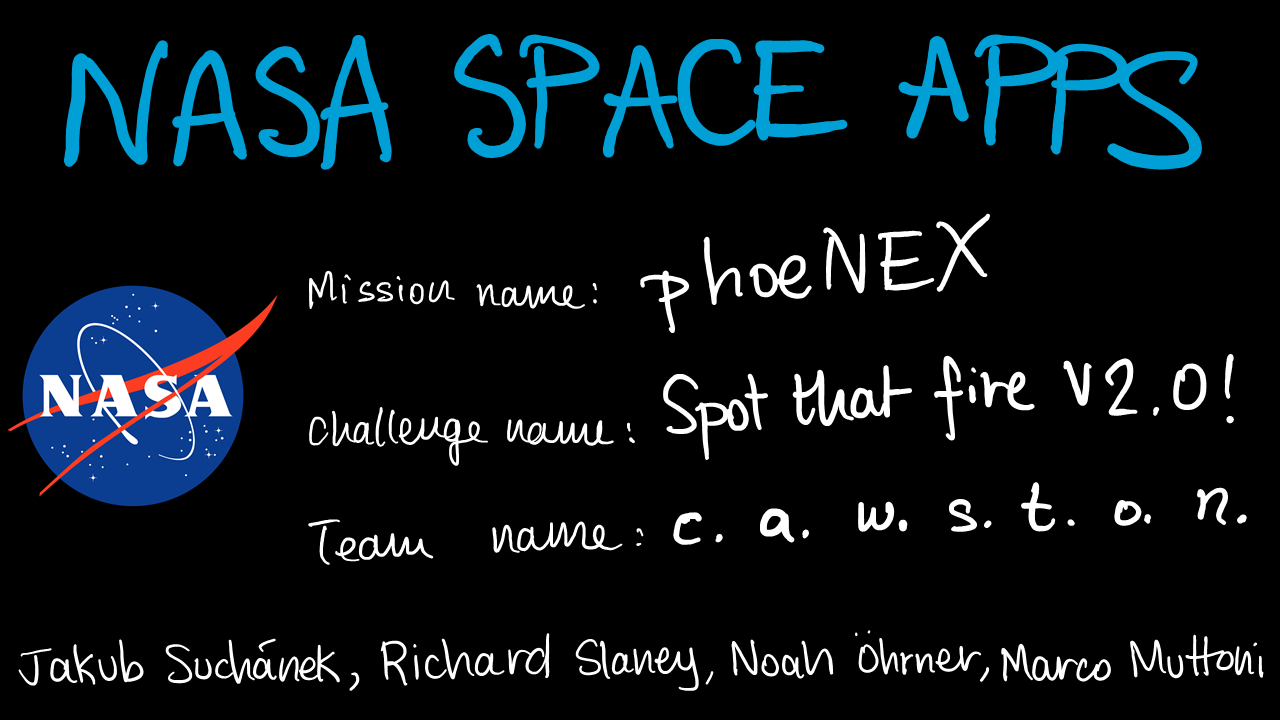 NASA SPACE APPS
Mission name: phoeNEX
NASA
Challenge name: Spot that fire V2.0!
Team name: c. a. w. s. t. o. n.
Jakub Suchánek, Richard Slaney, Noah Öhrner, Marco Muttoni